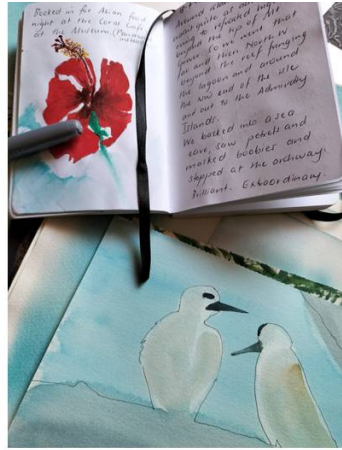 Booked in for Asian food
night at the Coral Cafe
at the Museum
quite at
to
the tip of
so we went that
far and then North W
beyond the reef fringing
the lagoon and around
the NW end of the isle
and out to the Admiralty
Islands.
We backed into a sea
cave, saw petrels and
masked boobies and
stopped at the archway.
Brilliant. Extraordinary.